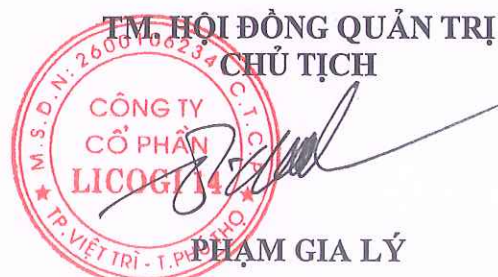 TM. HỘI ĐỒNG QUẢN TRỊ
CHỦ TỊCH
M.S.D.N: 2600106234 - C.T.C.P
CÔNG TY
CỔ PHẦN
LICOGI 14
TP. VIỆT TRÌ - T. PHÚ THỌ
PHẠM GIA LÝ